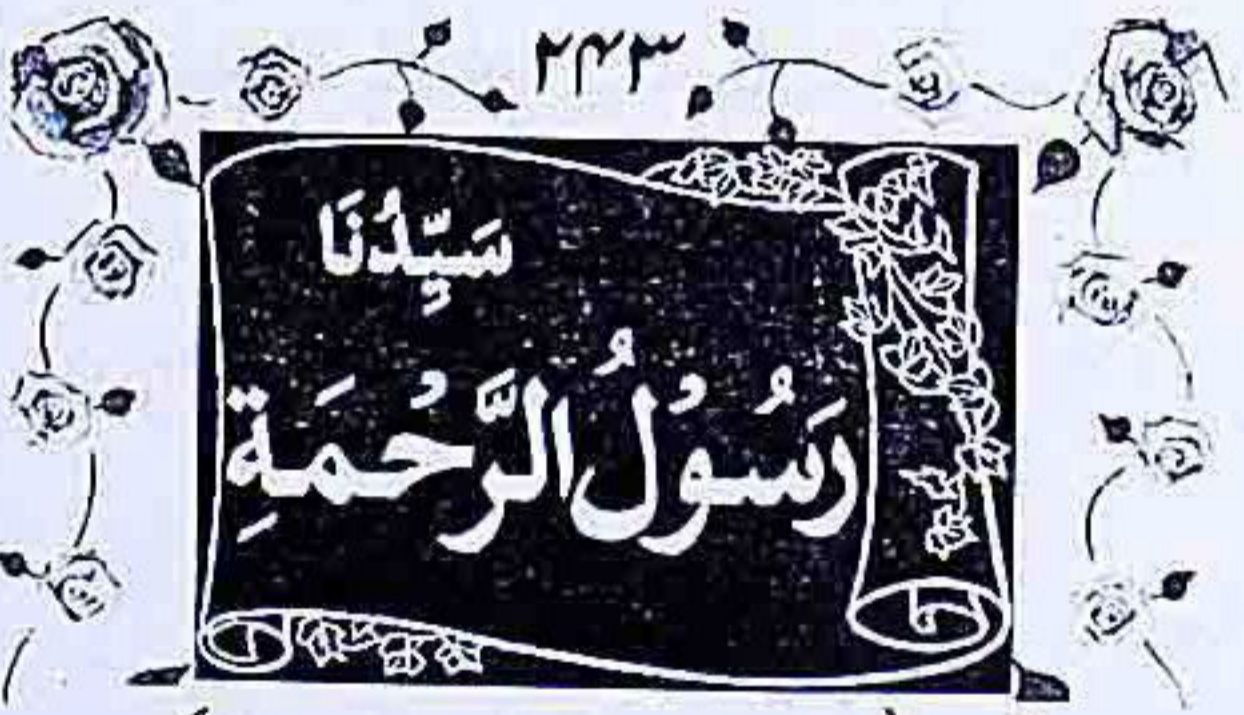 ۲۴۳
سَيِّدُنَا
رَسُوْلُ الرَّحْمَةِ